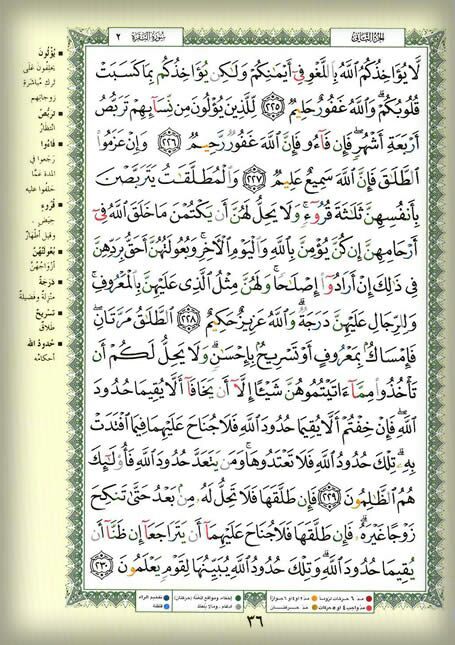 الجزء الثاني
سورة البقرة ٢
لَّا يُؤَاخِذُكُمُ ٱللَّهُ بِٱللَّغْوِ فِىٓ أَيْمَٰنِكُمْ وَلَٰكِن يُؤَاخِذُكُم بِمَا كَسَبَتْ
قُلُوبُكُمْ ۗ وَٱللَّهُ غَفُورٌ حَلِيمٌ ٢٢٥ لِّلَّذِينَ يُؤْلُونَ مِن نِّسَآئِهِمْ تَرَبُّصُ
أَرْبَعَةِ أَشْهُرٍ ۖ فَإِن فَآءُو فَإِنَّ ٱللَّهَ غَفُورٌ رَّحِيمٌ ٢٢٦ وَإِنْ عَزَمُوا۟
ٱلطَّلَٰقَ فَإِنَّ ٱللَّهَ سَمِيعٌ عَلِيمٌ ٢٢٧ وَٱلْمُطَلَّقَٰتُ يَتَرَبَّصْنَ
بِأَنفُسِهِنَّ ثَلَٰثَةَ قُرُوٓءٍ ۚ وَلَا يَحِلُّ لَهُنَّ أَن يَكْتُمْنَ مَا خَلَقَ ٱللَّهُ فِىٓ
أَرْحَامِهِنَّ إِن كُنَّ يُؤْمِنَّ بِٱللَّهِ وَٱلْيَوْمِ ٱلْءَاخِرِ ۚ وَبُعُولَتُهُنَّ أَحَقُّ بِرَدِّهِنَّ
فِى ذَٰلِكَ إِنْ أَرَادُوٓا۟ إِصْلَٰحًا ۚ وَلَهُنَّ مِثْلُ ٱلَّذِى عَلَيْهِنَّ بِٱلْمَعْرُوفِ ۚ
وَلِلرِّجَالِ عَلَيْهِنَّ دَرَجَةٌ ۗ وَٱللَّهُ عَزِيزٌ حَكِيمٌ ٢٢٨ ٱلطَّلَٰقُ مَرَّتَانِ ۖ
فَإِمْسَاكٌۢ بِمَعْرُوفٍ أَوْ تَسْرِيحٌۢ بِإِحْسَٰنٍ ۗ وَلَا يَحِلُّ لَكُمْ أَن
تَأْخُذُوا۟ مِمَّآ ءَاتَيْتُمُوهُنَّ شَيْـًٔا إِلَّآ أَن يَخَافَآ أَلَّا يُقِيمَا حُدُودَ
ٱللَّهِ ۖ فَإِنْ خِفْتُمْ أَلَّا يُقِيمَا حُدُودَ ٱللَّهِ فَلَا جُنَاحَ عَلَيْهِمَا فِيمَا ٱفْتَدَتْ
بِهِۦ ۗ تِلْكَ حُدُودُ ٱللَّهِ فَلَا تَعْتَدُوهَا ۚ وَمَن يَتَعَدَّ حُدُودَ ٱللَّهِ فَأُو۟لَٰٓئِكَ
هُمُ ٱلظَّٰلِمُونَ ٢٢٩ فَإِن طَلَّقَهَا فَلَا تَحِلُّ لَهُۥ مِنۢ بَعْدُ حَتَّىٰ تَنكِحَ
زَوْجًا غَيْرَهُۥ ۗ فَإِن طَلَّقَهَا فَلَا جُنَاحَ عَلَيْهِمَآ أَن يَتَرَاجَعَآ إِن ظَنَّآ أَن
يُقِيمَا حُدُودَ ٱللَّهِ ۗ وَتِلْكَ حُدُودُ ٱللَّهِ يُبَيِّنُهَا لِقَوْمٍ يَعْلَمُونَ ٢٣٠
يُؤْلُونَ
يحلفون على
ترك مباشرة
زوجاتهم
تَرَبُّصُ
انتظار
فَاءُوا
رجعوا في
المدة عمّا
حلفوا عليه
قُرُوءٍ
حيض
وقيل أطهار
بُعُولَتُهُنَّ
أزواجهن
دَرَجَةٌ
منزلة وفضيلة
تَسْرِيحٌ
طلاق
حُدُودُ الله
أحكامه
مد ٦ حركات لزوماً
مد ٢ أو ٤ أو ٦ جوازاً
إخفاء، ومواقع الغنة (حركتان)
تفخيم الراء
مد واجب ٤ أو ٥ حركات
مد حركتان
ادغام، وما لا يلفظ
قلقلة
٣٦